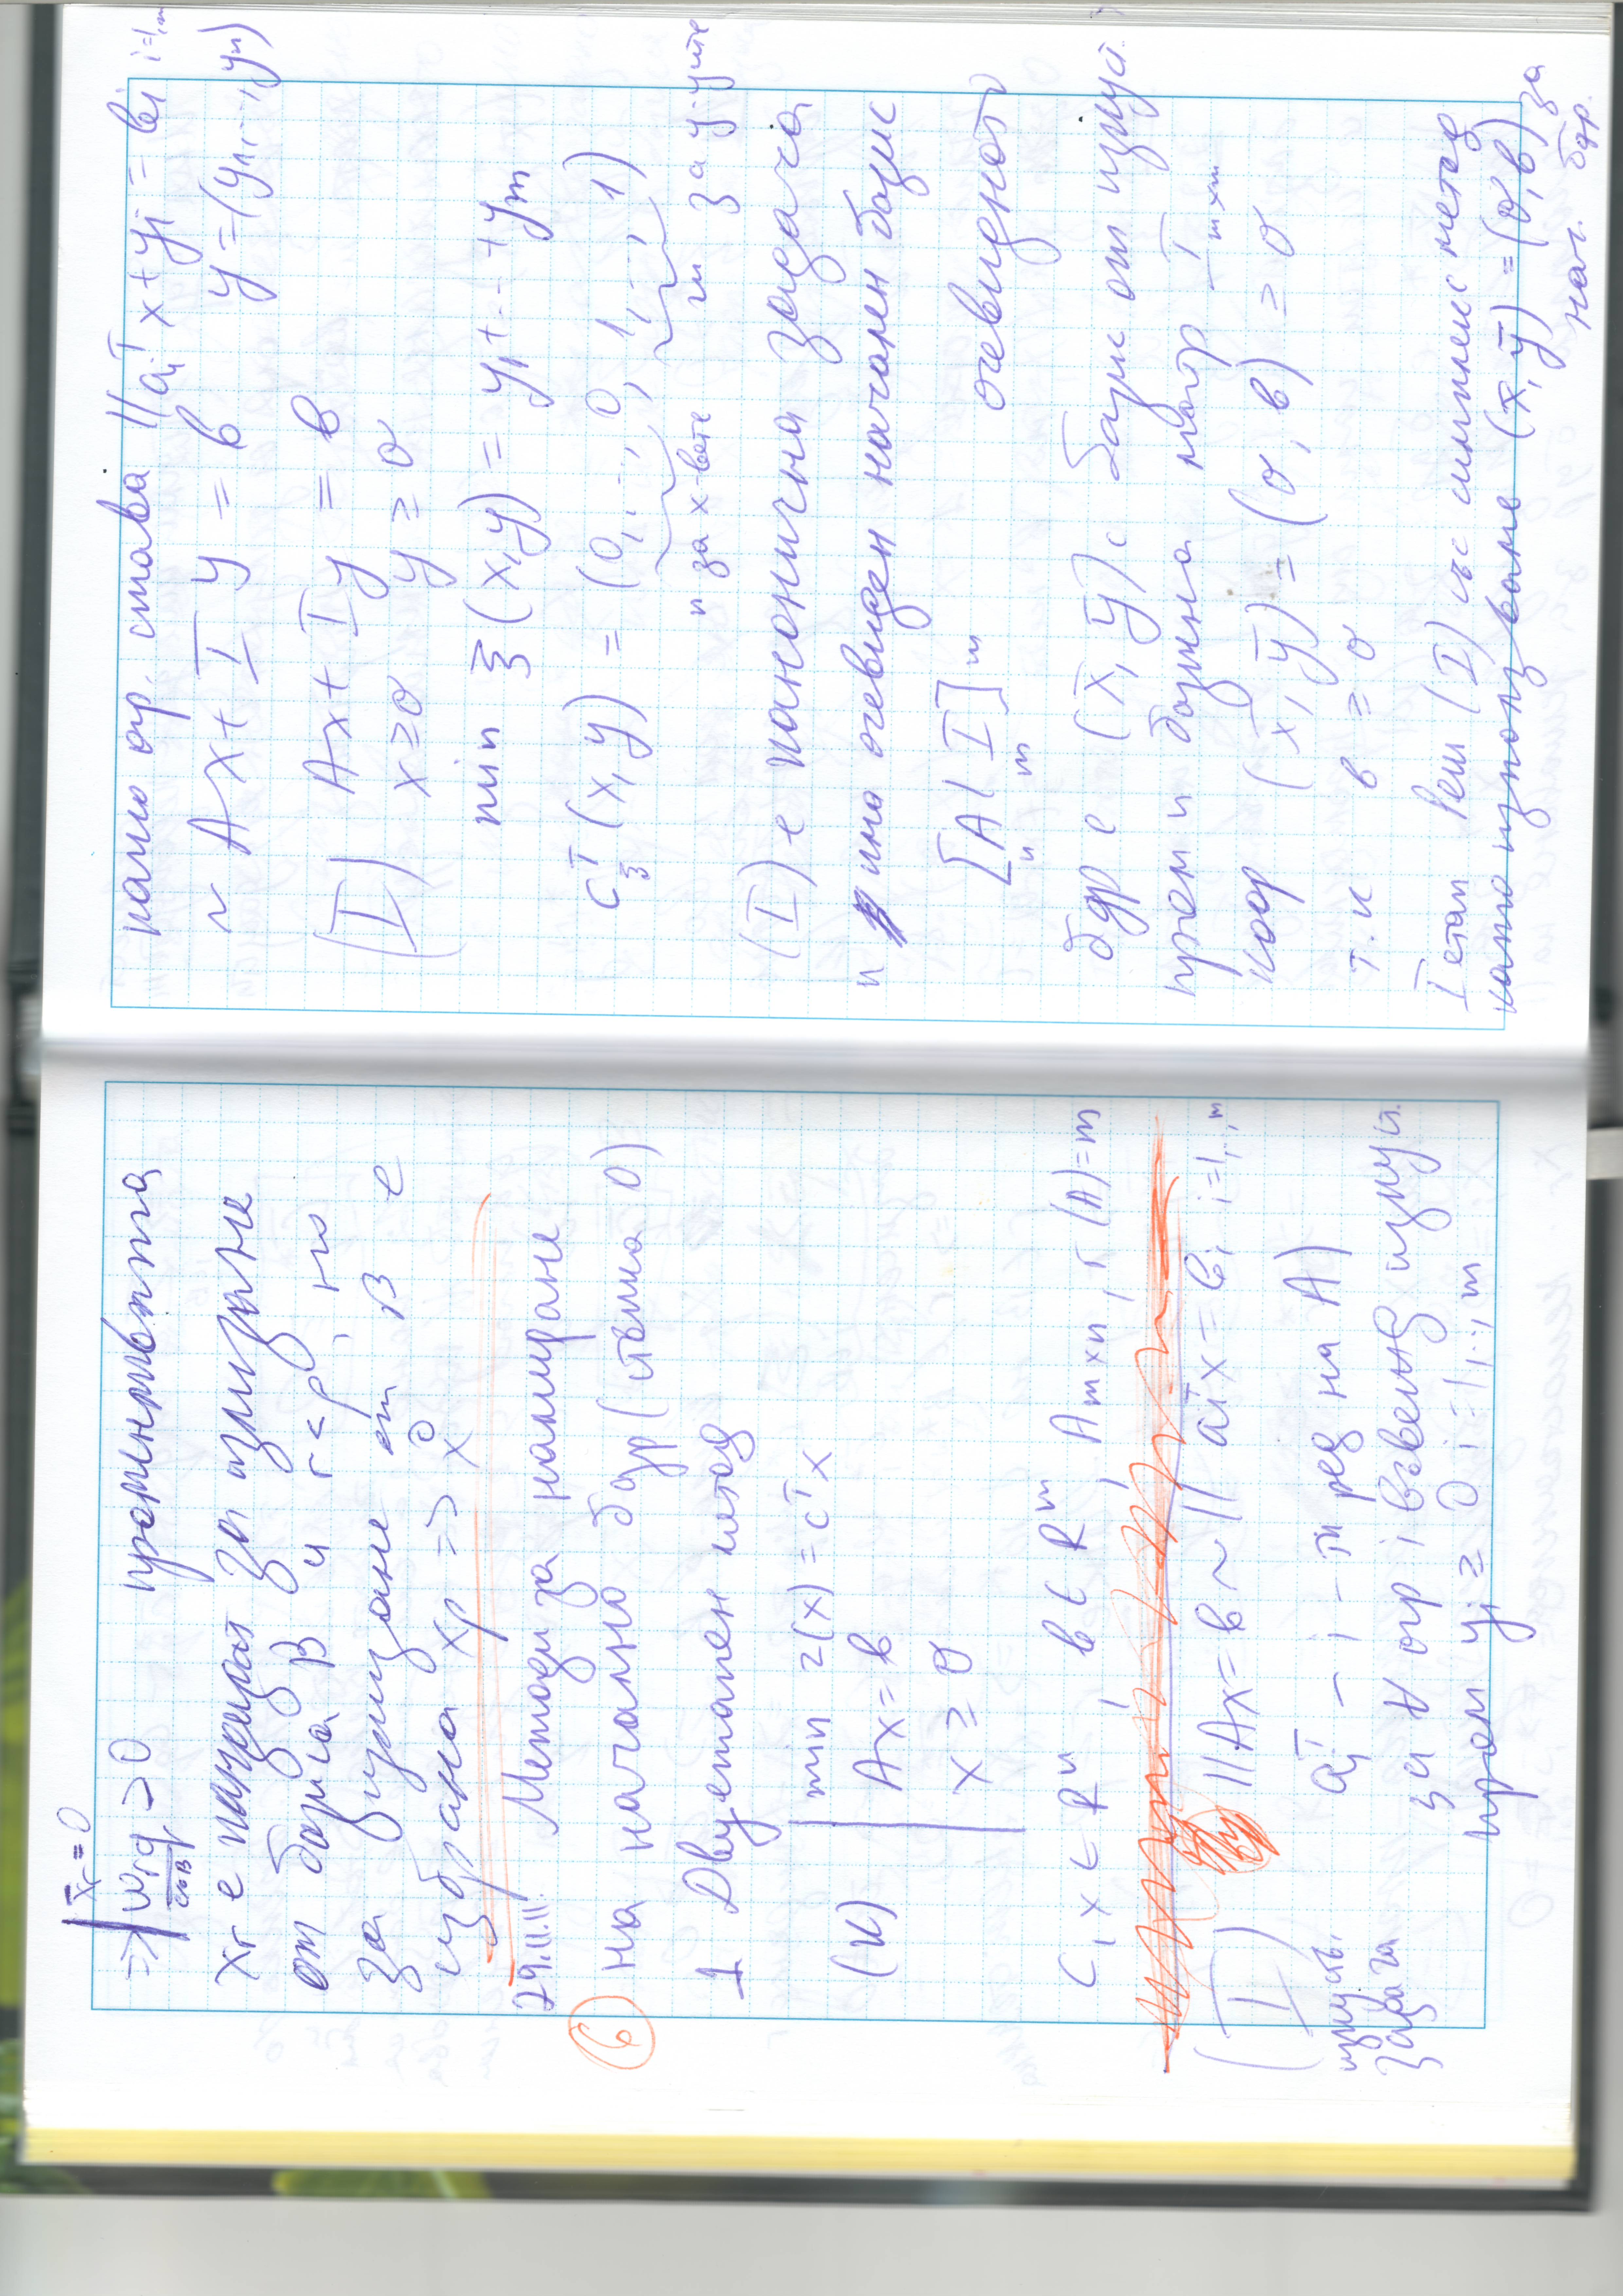 x̄r = 0
=> wrq > 0 променливата
xr е кандидат за излизане
от базиса B и r < p, но
за излизане от B е
избрана xp => x0
29.11.11. Методи за намиране
6 на начално бдр (стъпка 0)
1 Двуетапен метод
(K) min z(x) = cᵀx
Ax = b
x ≥ 0
c, x ∈ Rⁿ, b ∈ Rᵐ, A m×n, r(A) = m
(I) ||Ax = b ~ || aiᵀx = bi i=1,..,m
изкуств. задача
aiᵀ – i – ти ред на A)
за ∀ огр i въвежд изкуств.
пром yi ≥ 0 i = 1,..., m
като огр. става || aiᵀx + yi = bi i=1,m
~ Ax + I y = b y = (y1,...,yn)
(I) Ax + I y = b
x ≥ 0 y ≥ 0
min ξ(x,y) = y1 + ... + ym
cξᵀ(x,y) = (0,...,0, 1,...,1)
n за x-вете m за y-ците
(I) е канонична задача
и има очевиден начален базис
[A | I] m очевидното
n m
бдр е (x̄, ȳ) с базис от изкуст.
пром и базисна матр I m×m
коор (x̄, ȳ) = (0, b) ≥ 0
т.к b ≥ 0
I етап Реш (I) със симплекс метод
като използваме (x̄, ȳ) = (0, b) за
нач. бдр.